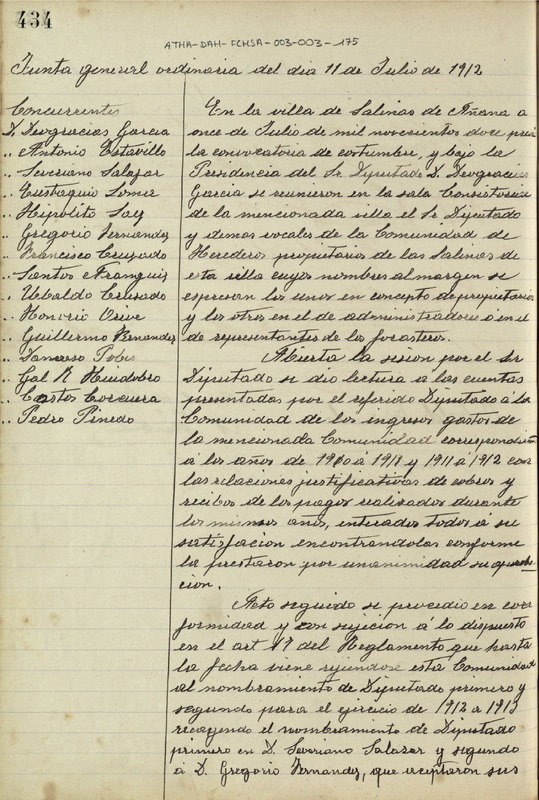 434
ATHA-DAH-FCHSA-003-003-175
Junta general ordinaria del dia 11 de Julio de 1912
Concurrentes
D. Deogracias Garcia
,, Antonio Estavillo
,, Severiano Salazar
,, Eustaquio Loma
,, Hipolito
,, Gregorio Fernandez
,, Francisco Cruzado
,, Santos Frangui
,, Ubaldo Cruzado
,, Honorio
,, Guillermo Fernandez
,, Damaso Pobes
,, Gal R. Huidobro
,, Castos Corcuera
,, Pedro Pinedo
En la villa de Salinas de Añana a
once de Julio de mil novecientos doce previa
la convocatoria de costumbre, y bajo la
Presidencia del Sr Diputado D. Deogracias
Garcia se reunieron en la sala Consistorial
de la mencionada villa el Sr Diputado
y demas vocales de la Comunidad de
Herederos propietarios de las Salinas de
esta villa cuyos nombres al margen se
espresan los unos en concepto de propietarios
y los otros en el de administradores ó en el
de representantes de los forasteros.
Abierta la sesion por el Sr
Diputado se dio lectura a las cuentas
presentadas por el referido Diputado á la
Comunidad de los ingresos gastos de
la mencionada Comunidad correspondientes
á los años de 1910 á 1911 y 1911 á 1912 con
las relaciones justificativas de cobros y
recibos de los pagos realizados durante
los mismos años, enterados todos a su
satisfacion encontrandolas conforme
la prestaron por unanimidad su aproba-
cion.
Acto seguido se procedio en con
formidad y con sujecion á lo dispuesto
en el art 17 del Reglamento que hasta
la fecha viene rejiendose esta Comunidad
al nombramiento de Diputado primero y
segundo para el ejercicio de 1912 a 1913
recayendo el nombramiento de Diputado
primero en D. Severiano Salazar y segundo
á D. Gregorio Fernandez, que aceptaron sus